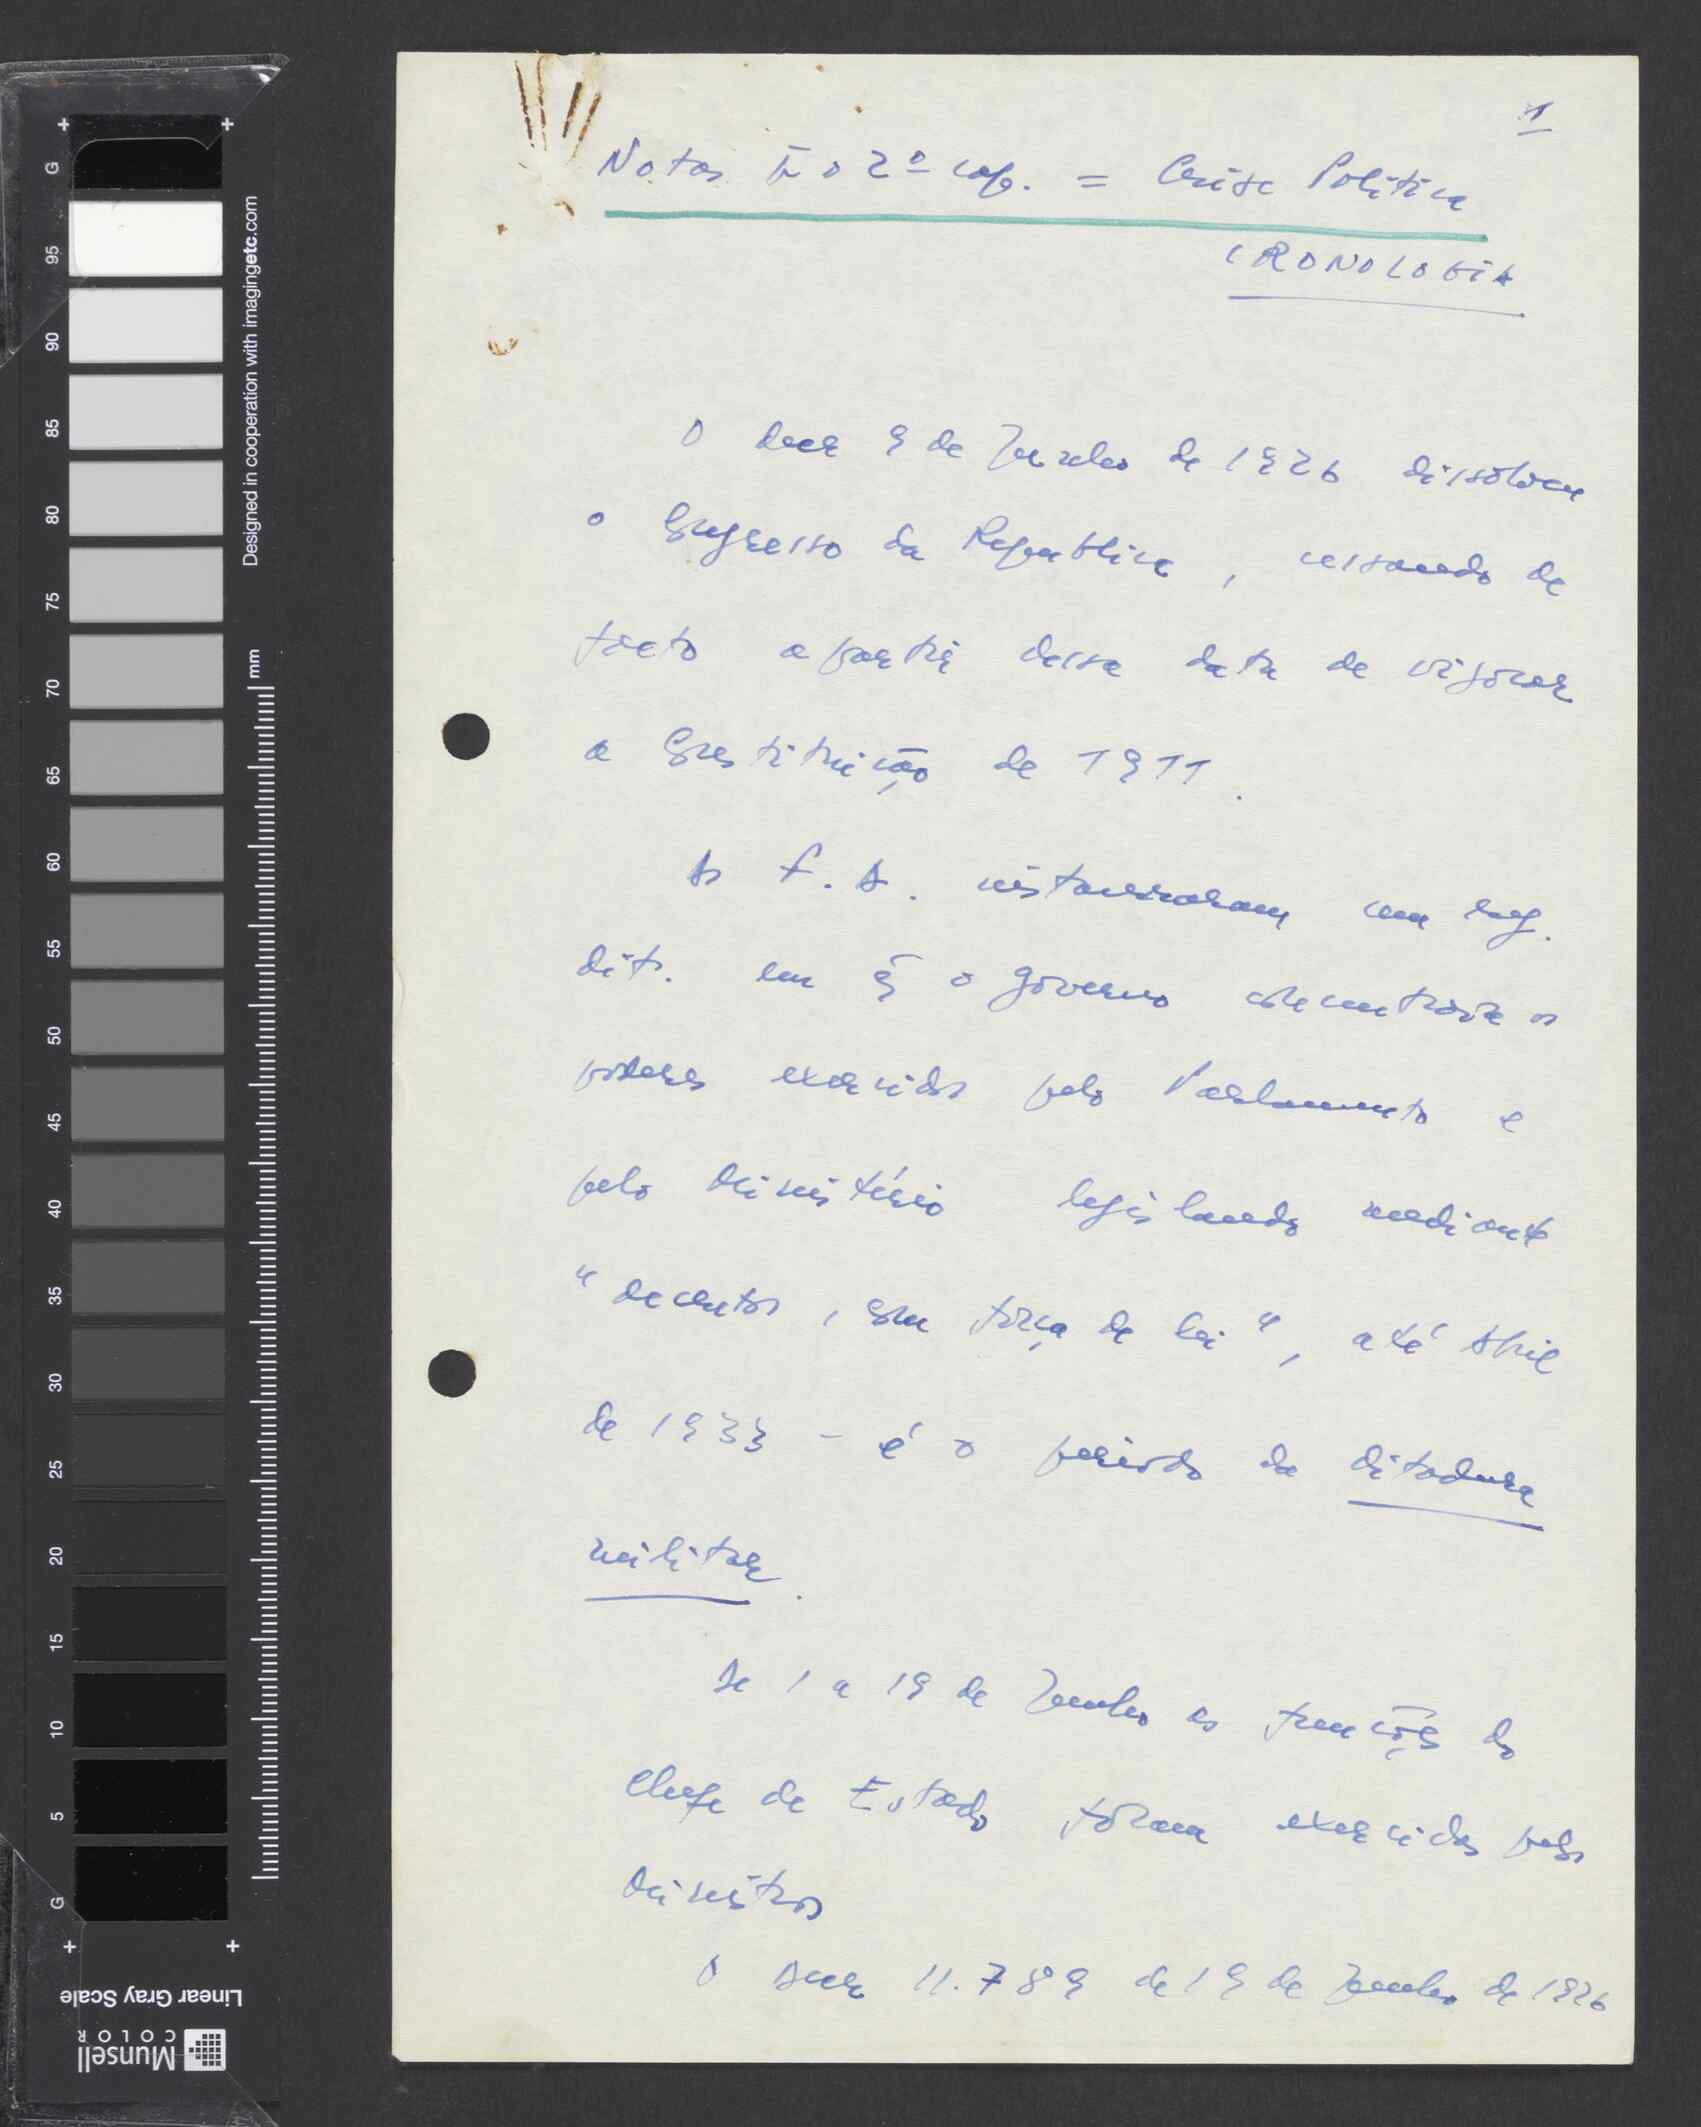 1
Notas p. o 2º cap. = Crise Politica
CRONOLOGIA
O decr 9 de Junho de 1926 dissolveu
o Congresso da Republica, cessando de
facto a partir dessa data de vigorar
a Constituição de 1911.
As F. A. instauraram um reg.
dit. em q̃ o governo concentrava os
poderes exercidos pelo Parlamento e
pelo Ministério legislando mediante
"decretos, com força de lei", até Abril
de 1933 - é o periodo da ditadura
militar.
De 1 a 19 de Junho as funções do
Chefe de Estado foram exercidas pelos
Ministros
O Decr 11.789 de 19 de Junho de 1926
G
95
90
85
80
75
70
65
60
55
50
45
40
35
30
25
20
15
10
5
G
Designed in cooperation with imagingetc.com
mm
Linear Gray Scale
Munsell
COLOR